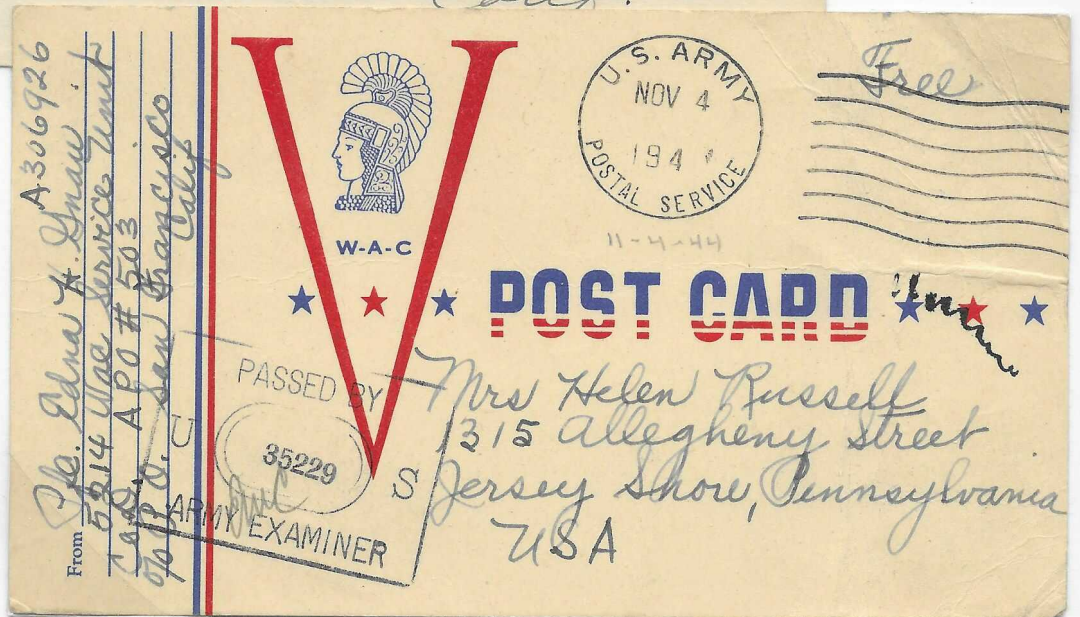 Pfc. Edna H. Gman A306926
5214 Wac Service Unit
APO # 503
c/o P.O. San Francisco
Calif
From
W-A-C
U.S. ARMY
NOV 4
194
POSTAL SERVICE
Free
11-4-44
POST CARD
PASSED BY
U 35229 S
ARMY EXAMINER
Mrs Helen Russell
315 Allegheny Street
Jersey Shore, Pennsylvania
USA